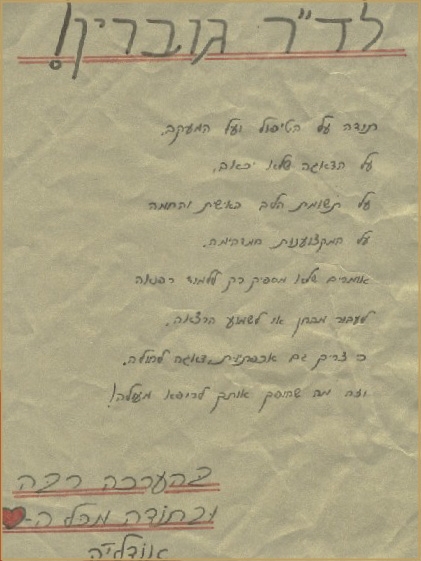 לד"ר גוברין!
תודה על הטיפול ועל המעקב.
על הדאגה שלא יכאב,
על תשומת הלב האישית והחמה
על המקצוענות המדהימה.
אומרים שלא מספיק רק ללמוד רפואה
לעבור מבחן או לשמוע הרצאה,
כי צריך גם אכפתיות, דאגה לחולה,
וזה מה שהופך אותך לרופא מעולה!
בהערכה רבה
ובתודה מכל ה-
אודליה